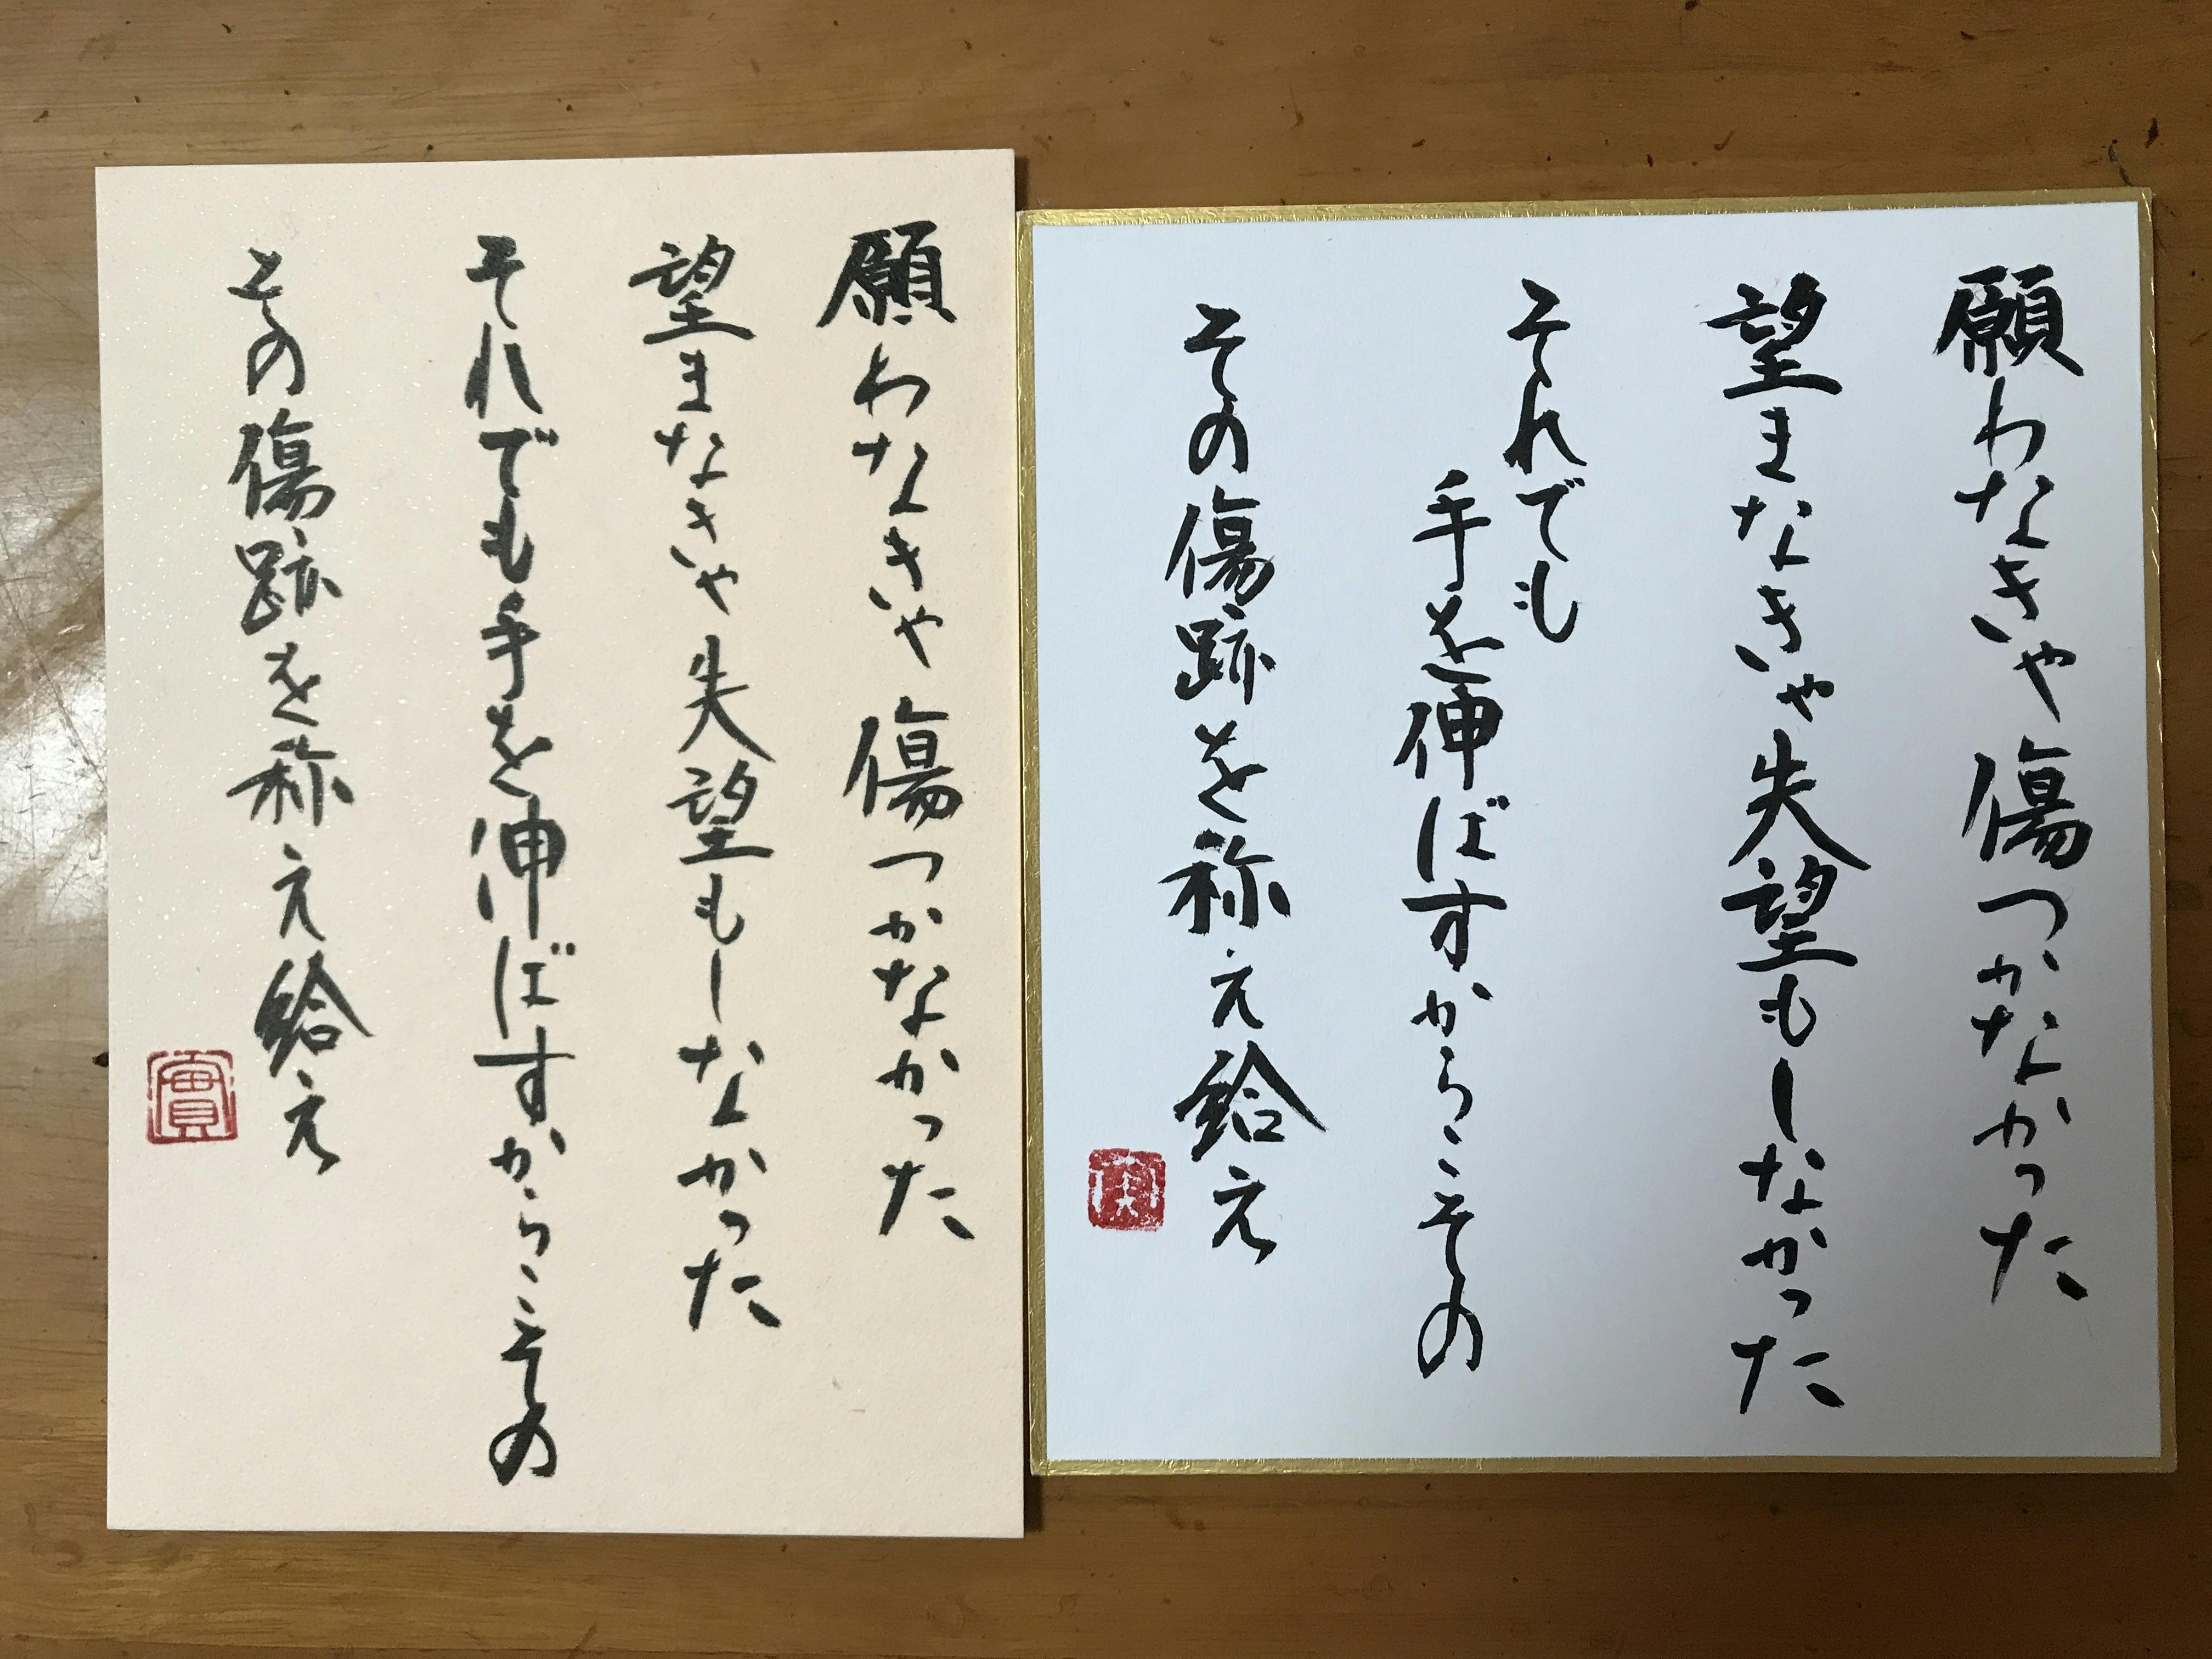 願わなきゃ傷つかなかった
望まなきゃ失望もしなかった
それでも手を伸ばすからこその
その傷跡を称え給え
實
願わなきゃ傷つかなかった
望まなきゃ失望もしなかった
それでも
手を伸ばすからこその
その傷跡を称え給え